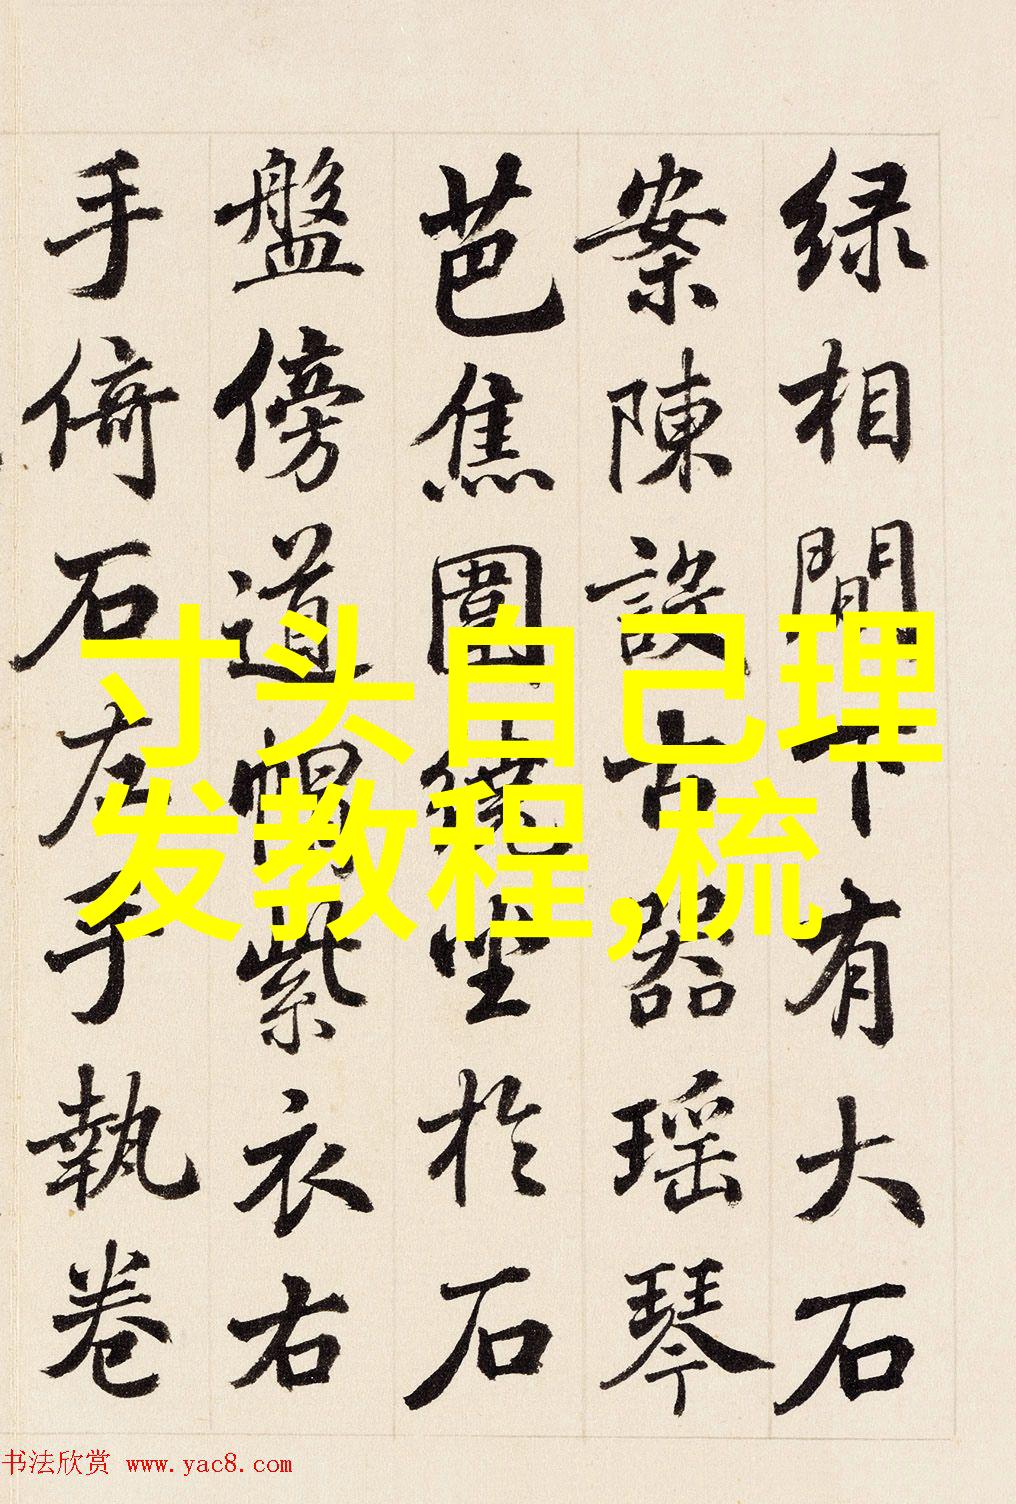 绿相間下有大石
案陳設古器瑤琴
芭焦圍繞坐於石
盤傍道帽紫衣右
手倚石左手執卷
寸头自己理
发教程,梳
书法欣赏 www.yac8.com